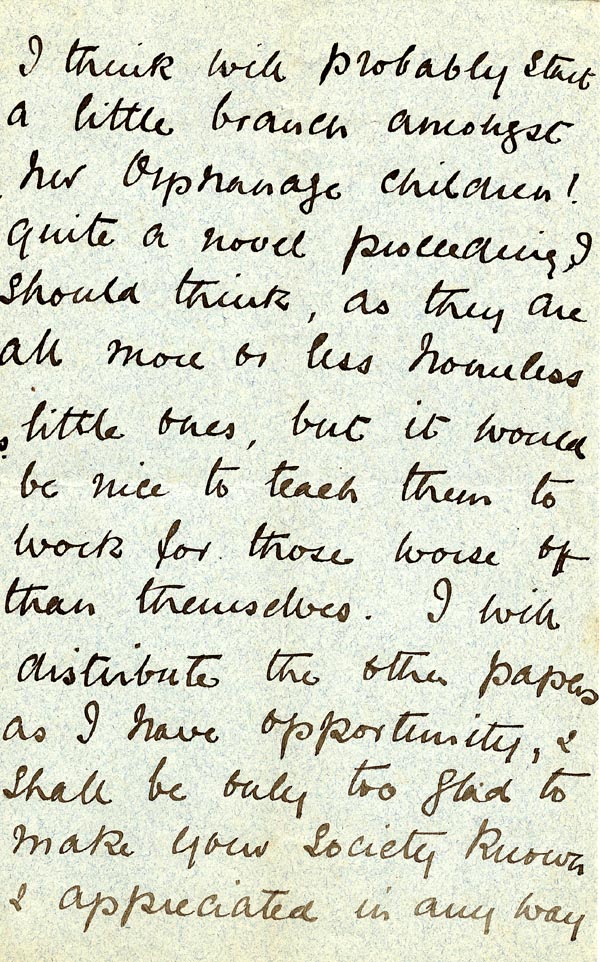 I think will probably start
a little branch amongst
her Orphanage children!
quite a novel proceeding, I
should think, as they are
all more or less homeless
little ones, but it would
be nice to teach them to
work for those worse of
than themselves. I will
distribute the other papers
as I have opportunity, &
shall be only too glad to
make your Society known
& appreciated in any way